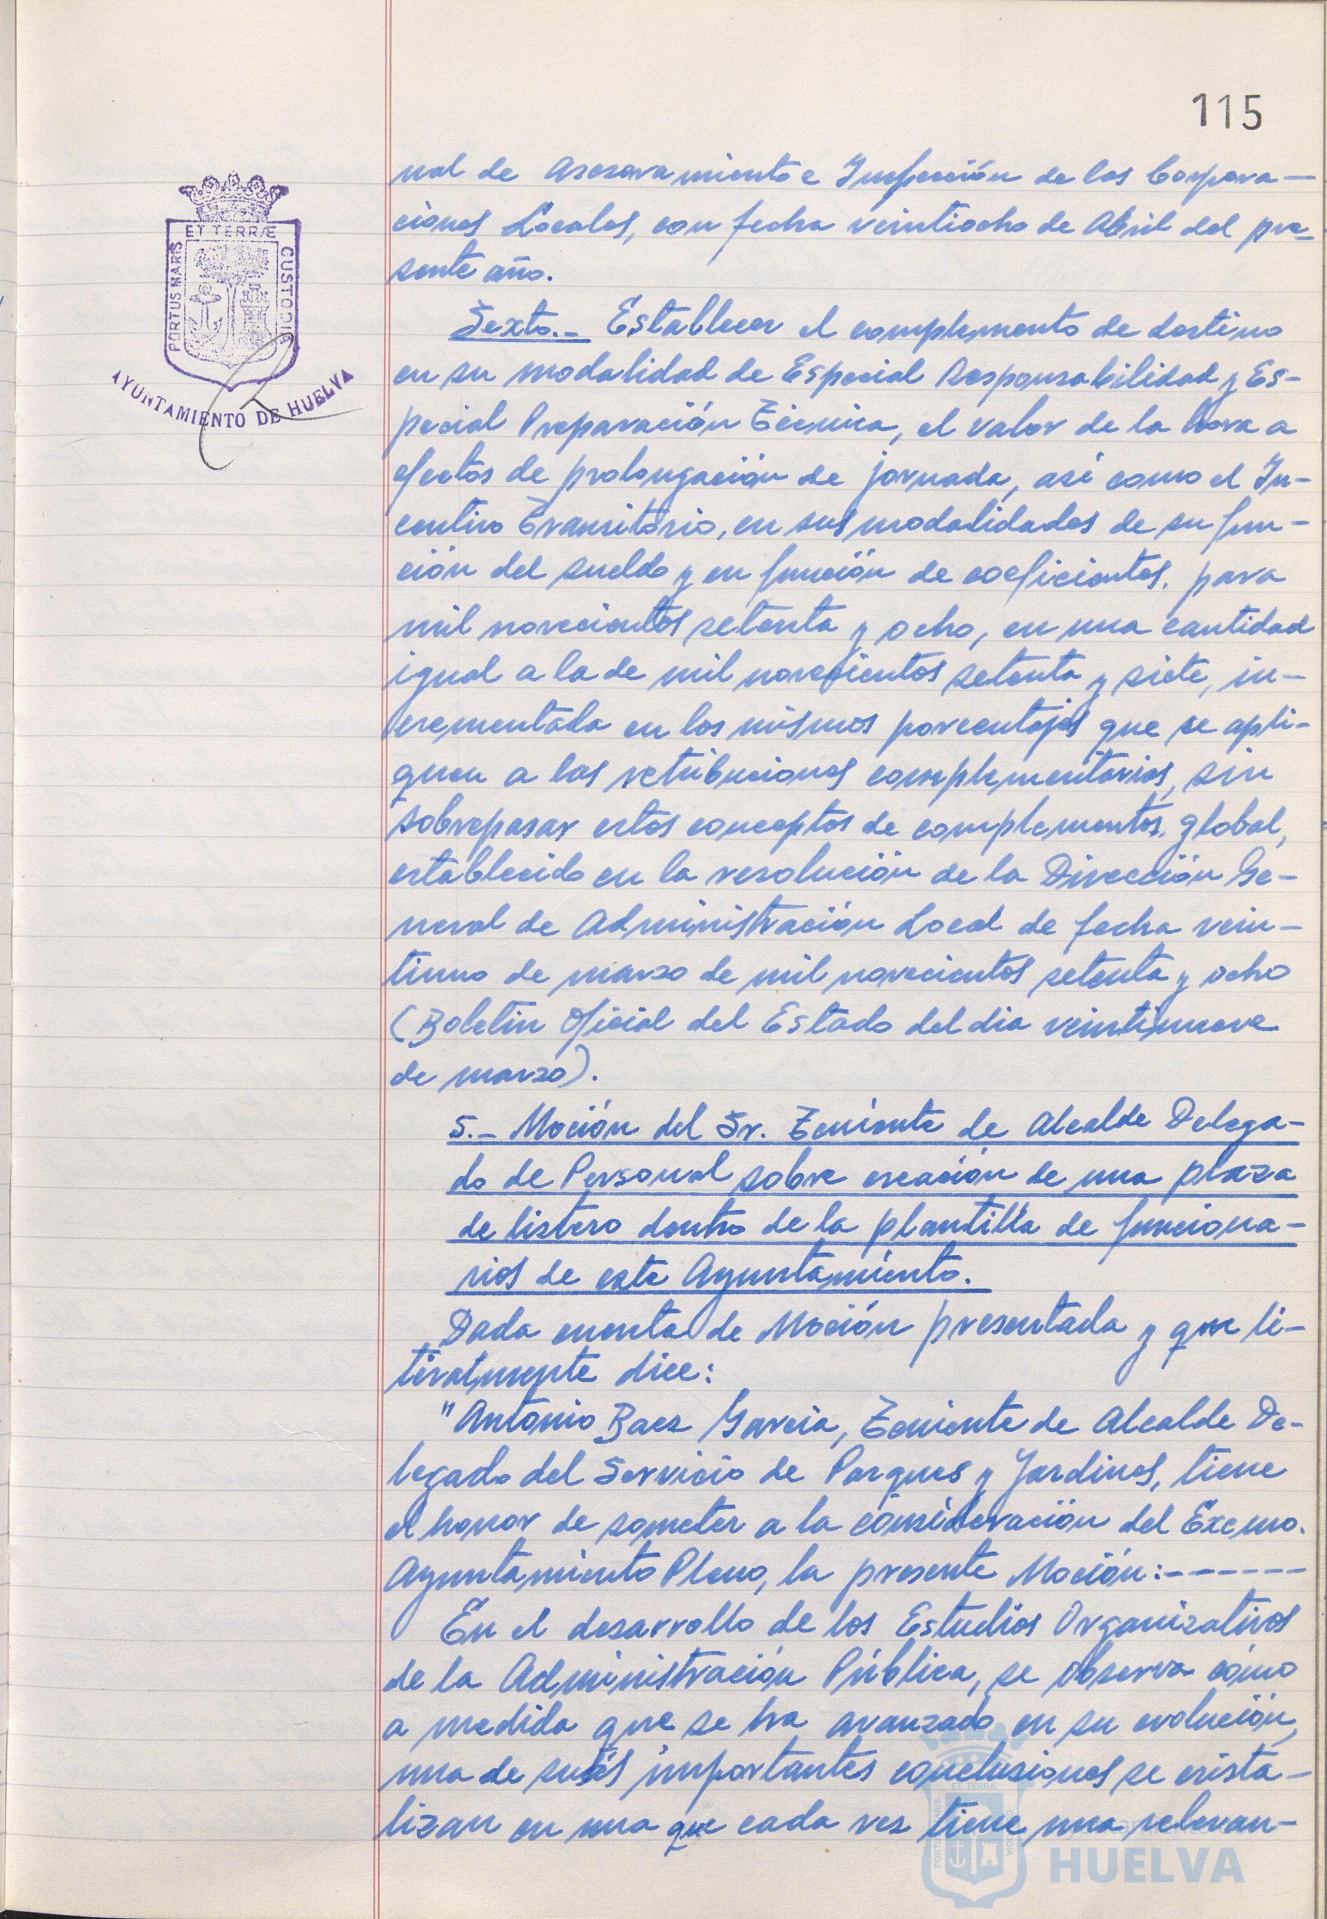 115
ET TERRÆ
PORTUS MARIS
CUSTODIA
AYUNTAMIENTO DE HUELVA
nal de Asesoramiento e Inspección de las Corpora-
ciones Locales, con fecha veintiocho de Abril del pre-
sente año.
Sexto.- Establecer el complemento de destino
en su modalidad de Especial Responsabilidad y Es-
pecial Preparación Técnica, el valor de la hora a
efectos de prolongación de jornada, así como el In-
centivo Transitorio, en sus modalidades de su fun-
ción del sueldo y en función de coeficientes, para
mil novecientos setenta y ocho, en una cantidad
igual a la de mil novecientos setenta y siete, in-
crementada en los mismos porcentajes que se apli-
quen a las retribuciones complementarias, sin
sobrepasar estos conceptos de complementos, global,
establecido en la resolución de la Dirección Ge-
neral de Administración Local de fecha vein-
tiuno de marzo de mil novecientos setenta y ocho
(Boletin Oficial del Estado del dia veintinueve
de marzo).
5.- Moción del Sr. Teniente de Alcalde Delega-
do de Personal sobre creación de una plaza
de listero dentro de la plantilla de funciona-
rios de este Ayuntamiento.
Dada cuenta de Moción presentada y que li-
teralmente dice:
"Antonio Baez Garcia, Teniente de Alcalde De-
legado del Servicio de Parques y Jardines, tiene
el honor de someter a la consideración del Excmo.
Ayuntamiento Pleno, la presente Moción:------
En el desarrollo de los Estudios Organizativos
de la Administración Pública, se observa cómo
a medida que se ha avanzado en su evolución,
una de importantes conclusiones se crista-
lizan en una que cada vez tiene una relevan-
ET TERRÆ
HUELVA